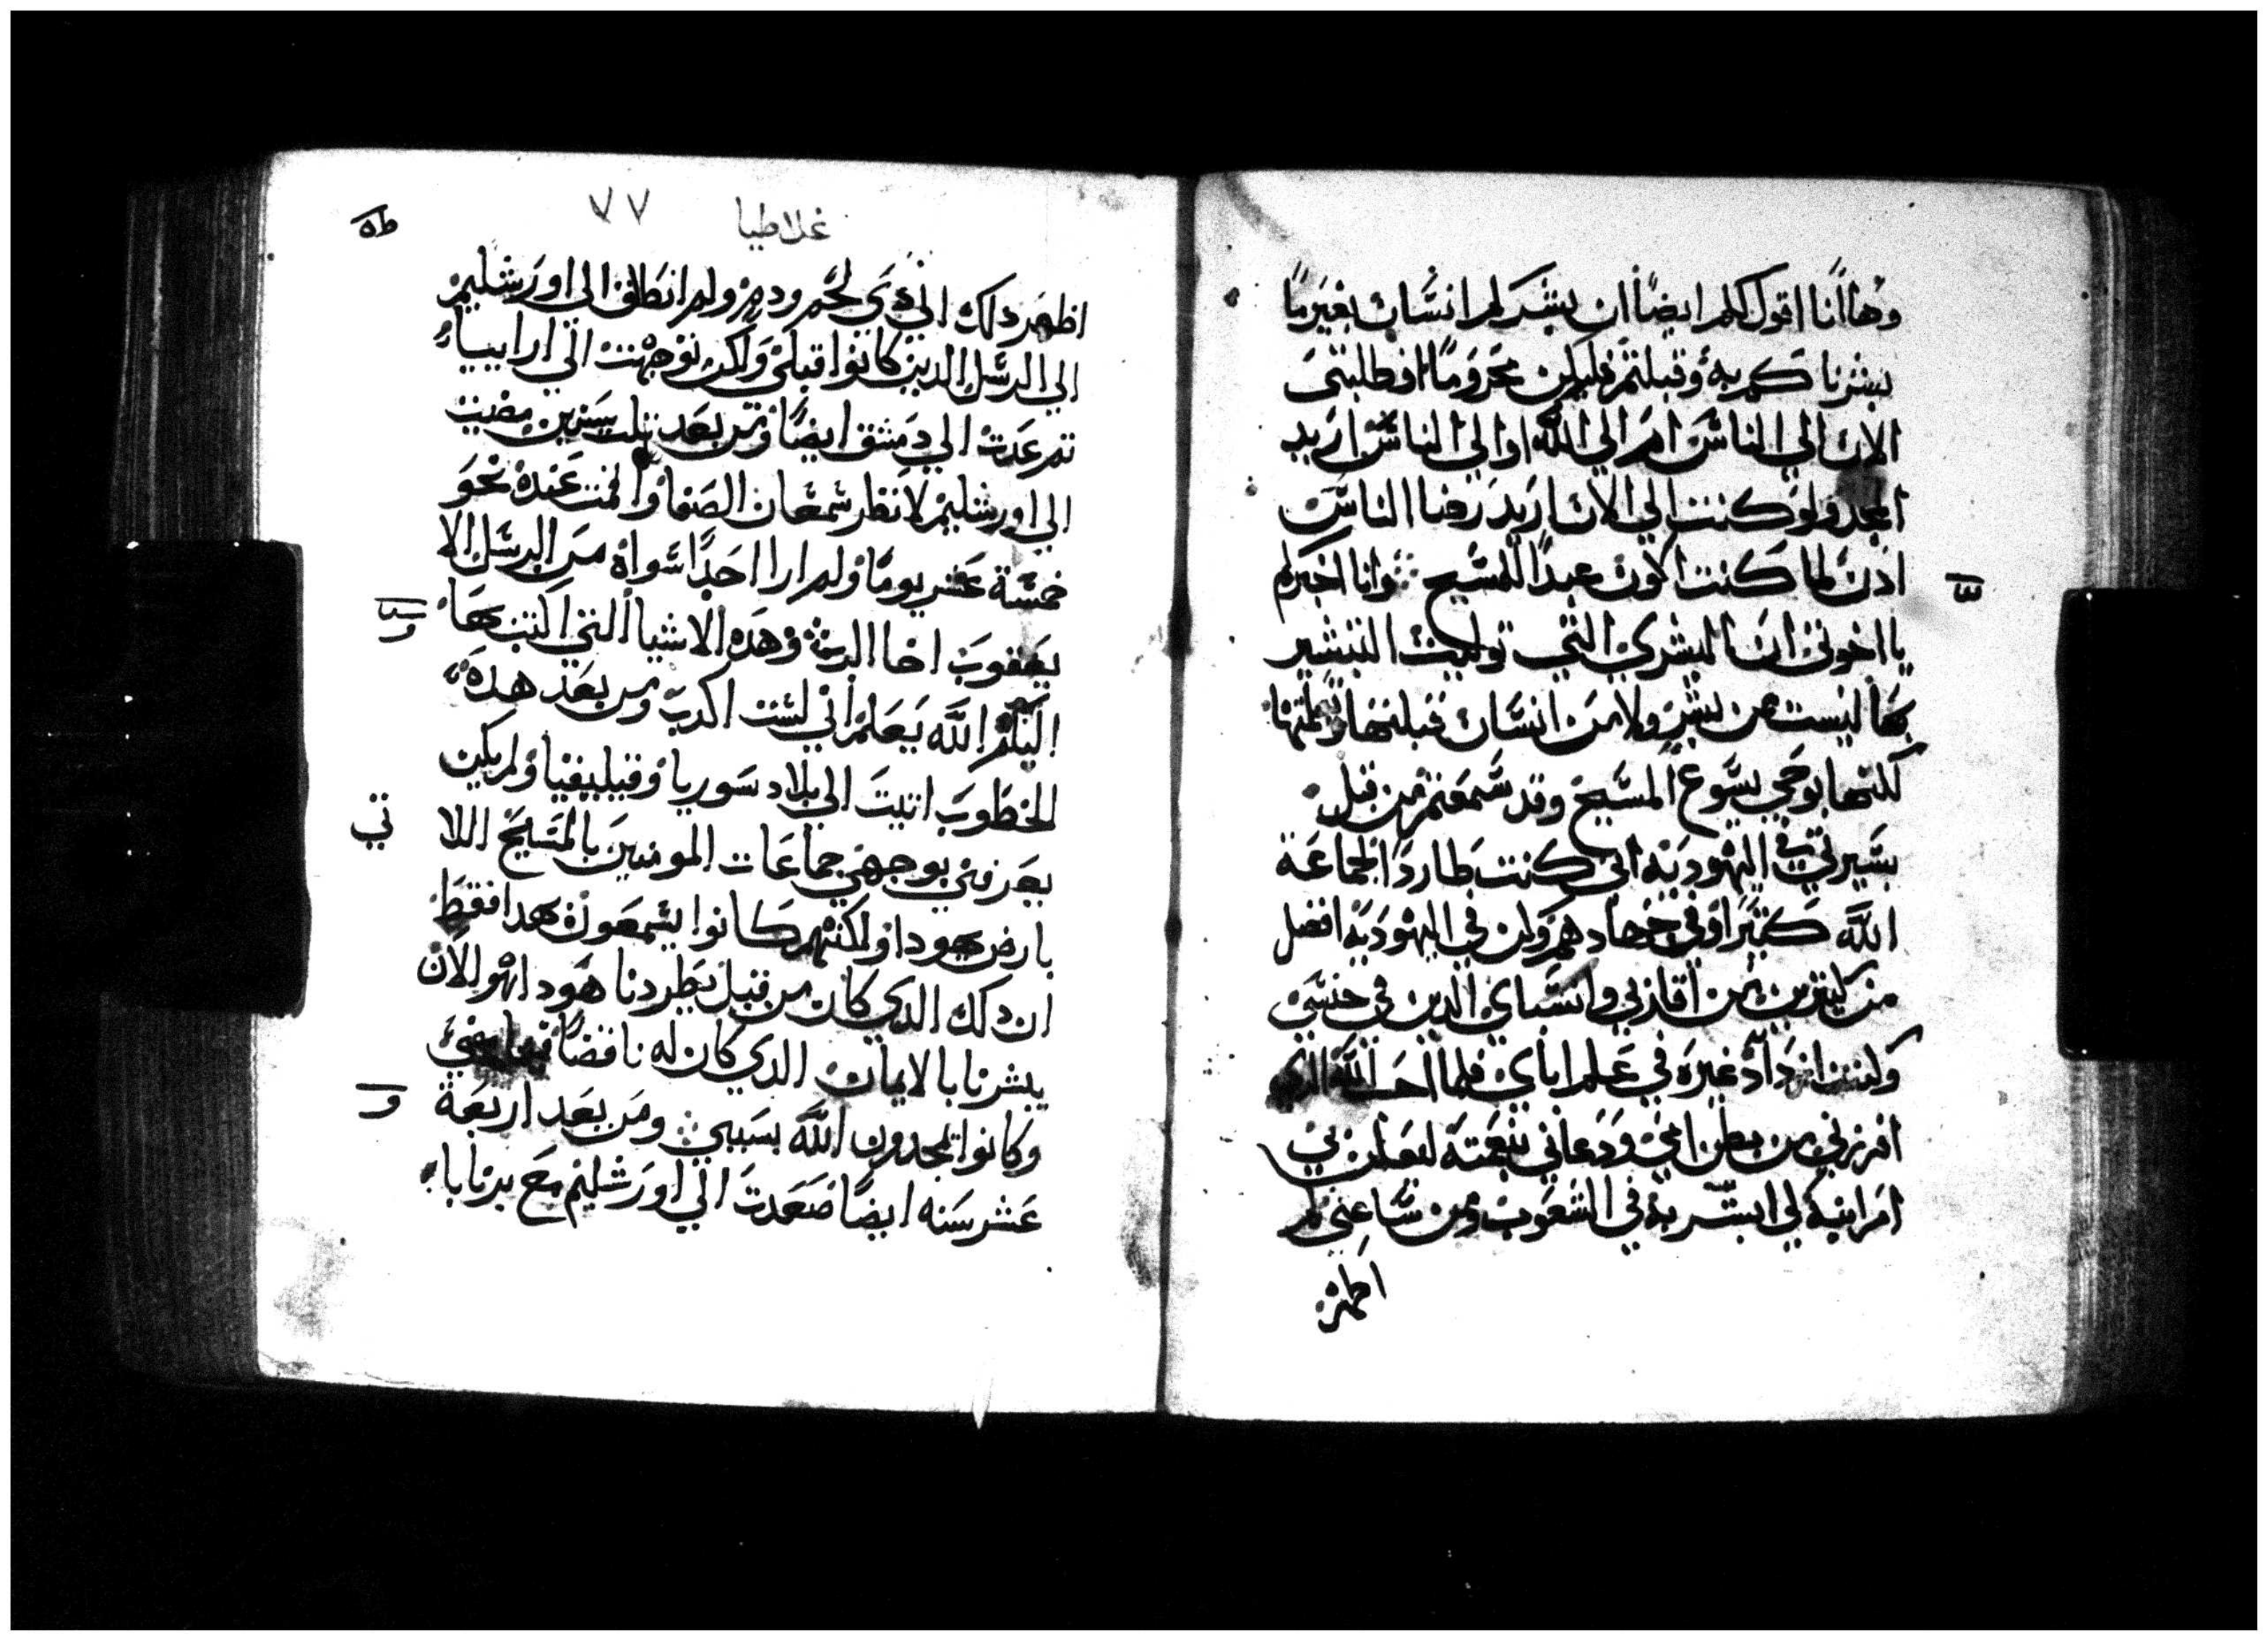 وها انا اقول لكم ايضا ان بشركم انسان بغير ما
بشرناكم به وقبلتم فليكن محروما افطلبتى
الان الي الناس ام الي الله او الي الناس اريد
المجد ولو كنت الي الان اريد رضا الناس
اذن لما كنت اكون عبدا للمسيح وانا اخبركم
يا اخوتى ان البشري التى توليت التبشير
بها ليست من بشر ولا من انسان قبلتها وتعلمتها
لكنها بوحي يسوع المسيح وقد سمعتم من قبل
بسيرتي في اليهوديه اني كنت طاردا لجماعة
الله كثيرا وفي جهادهم وان في اليهوديه افضل
من كثيرين من اقاربي وانسباي الدين في جنسي
وكنت ازداد غيره في علم اباي فلما احب الله الدي
افرزني من بطن امي ودعاني بنعمته ليعلن بي
امر ابنه لي ابشر به في الشعوب ومن ساعتي لم
اظهر
طه
٧٧ غلاطيا
اظهر دلك الي دي لحم ودم ولم انطلق الي اورشليم
الي الرسل الدين كانوا قبلي ولكن توجهت الي ارابيا
تم عدت الي دمشق ايضا وتم بعد تلت سنين مضيت
الي اورشليم لانظر شمعان الصفا واقمت عنده نحو
خمسة عشر يوما ولم ارا احدا سواه من الرسل الا
يعقوب اخا الرب وهده الاشيا التي اكتب بها
اليكم الله يعلم اني لست اكدب ومن بعد هده
الخطوب اتيت الي بلاد سوريا وقيليقيا ولم يكن
يعرفني بوجهي جماعات المومنين بالمسيح اللا
تي
بارض يهودا ولكنهم كانوا يسمعون هدا فقط
ان دلك الدي كان من قبل يطردنا هودا هو الان
يبشرنا بالايمان الدي كان له ناقضا
وكانوا يمجدون الله بسببي ومن بعد اربعة
عشر سنه ايضا صعدت الي اورشليم مع برنابا